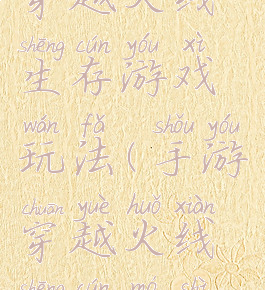 穿越火线
shēng cún yóu xì
生存游戏
wán fǎ shǒu yóu
玩法(手游
chuān yuè huǒ xiàn
穿越火线
shēng cún mó shì